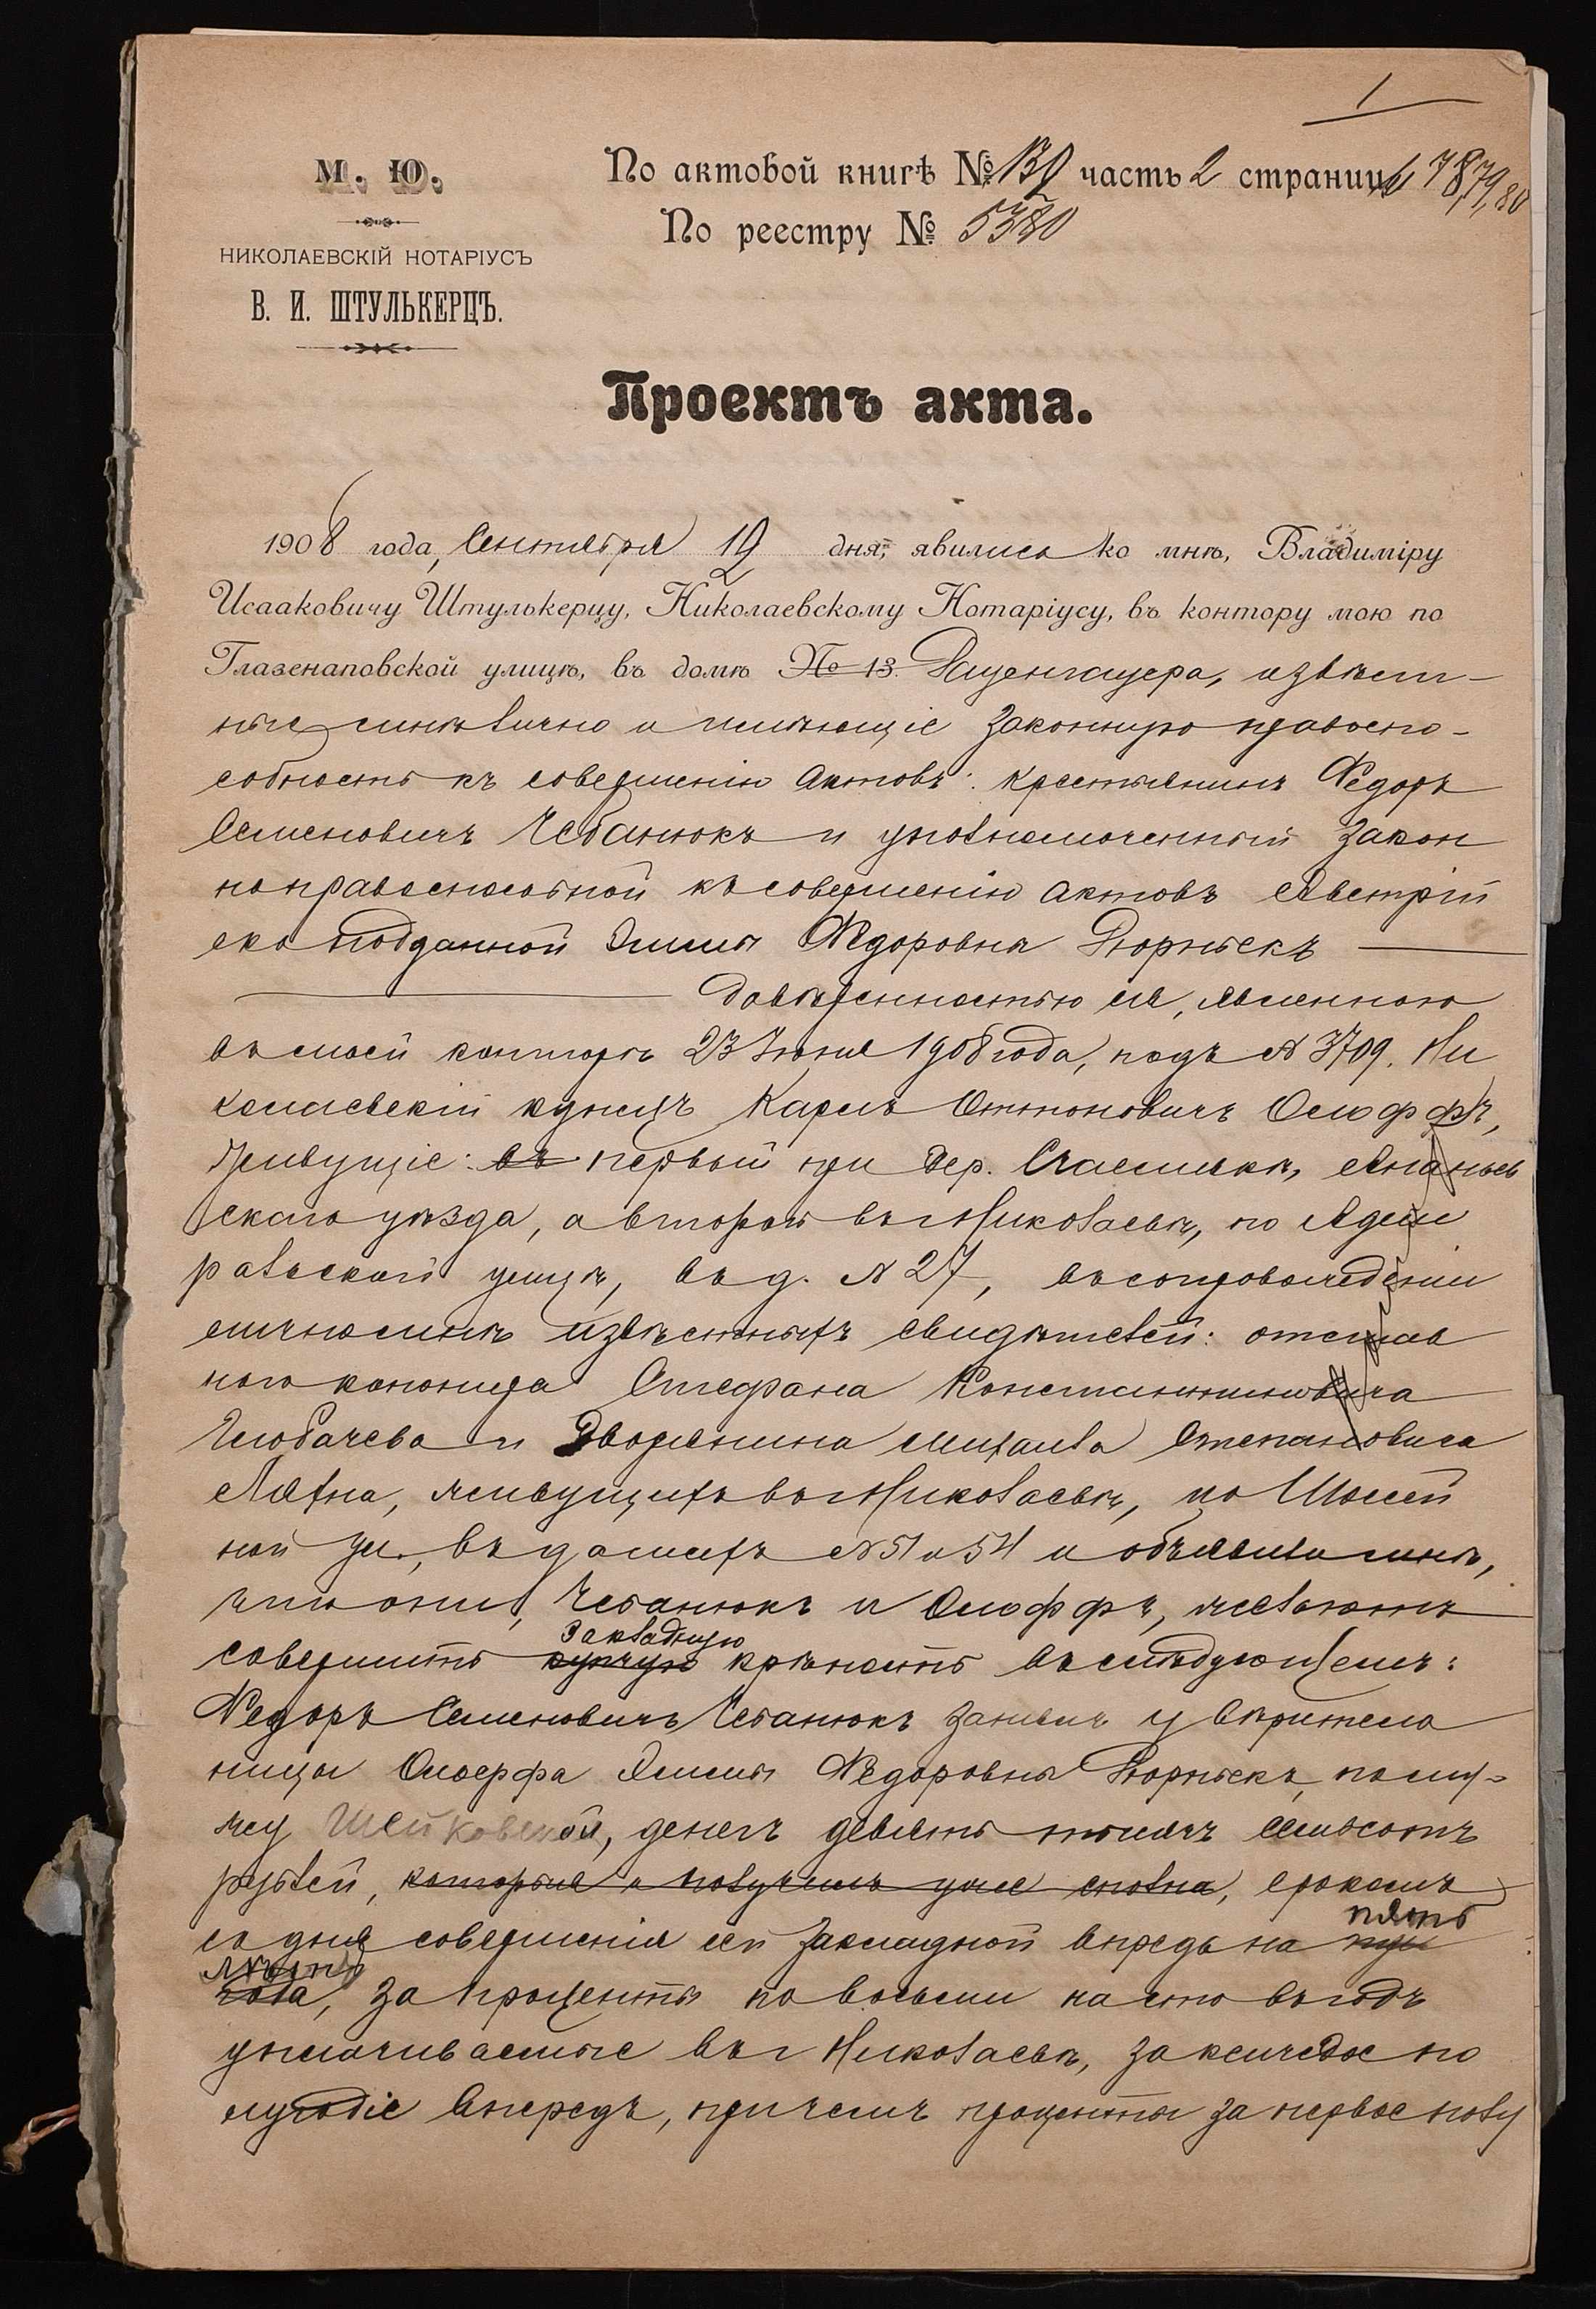 1
М. Ю.
НИКОЛАЕВСКІЙ НОТАРІУСЪ
В. И. ШТУЛЬКЕРЦЪ.
По актовой книгѣ № часть 2 страницы 78, 79, 80
По реестру № 5380
Проектъ акта.
1908 года, Сентября 19 дня, явились ко мнѣ, Владиміру
Исааковичу Штулькерцу, Николаевскому Нотаріусу, въ контору мою по
Глазенаповской улицѣ, въ домѣ № 13. извѣст-
ные мнѣ лично и имѣющіе законную правоспо-
собность къ совершенію актовъ: крестьянинъ Федоръ
Семеновичъ Чебанюкъ и уполномоченный закон
но правоспособной къ совершенію актовъ Австрій
ско подданной Эммы Федоровны
довѣренностью ея, явленною
въ моей конторѣ 23 Іюня 1908 года, подъ № 3709. Ни
колаевскій купецъ Карлъ Оттоновичъ
Живущіе: въ первый при дер. Ананьев
скаго уѣзда, а второй въ г. Николаевѣ, по Адми
ральской улицѣ, въ д. № 27, въ сопровожденіи
лично мнѣ извѣстныхъ свидѣтелей: отстав
ного канонира Стефана Константиновича
и Дворянина Михаила Степановича
живущихъ въ г. Николаевѣ, по
ной ул., въ домахъ № 51 и 54 и объявили мнѣ,
что они, Чебанюкъ и желаютъ
закладную
совершить купчую крѣпость въ слѣдующемъ:
Федоръ Семеновичъ Чебанюкъ занялъ у вѣритель
ницы Эммы Федоровны по му-
жу денегъ девять тысячъ семьсотъ
рублей, которые и получилъ уже сполна, срокомъ
пять
со дня совершенія сей закладной впредь на три
лѣтъ
года, за проценты по восьми на сто въ годъ
уплачиваемые въ г. Николаевѣ, за каждое по
лугодіе впередъ, причемъ проценты за первое полу